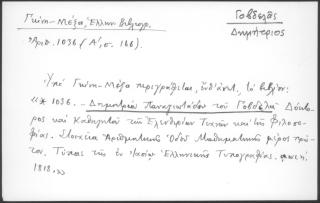 Γκίνη - Μέξα, Ἑλλην. Βιβλιογρ.
Ἀριθ. 1036 (Α', σ. 166).
Γοβδελᾶς
Δημήτριος
Ὑπὸ Γκίνη - Μέξα περιγράφεται, τὸ βιβλίον:
«* 1036. — Δημητρίου Παναγιωτάδου τοῦ Γοβδελᾶ Δόκτο-
ρος καὶ Καθηγητοῦ τῶν Ἐλευθερίων Τεχνῶν καὶ τῆς Φιλοσο-
φίας. Στοιχεῖα Ἀριθμητικῆς Ὁδοῦ Μαθηματικῆς μέρος πρῶ-
τον. Τύποις τῆς ἐν Ἰασίῳ Ἑλληνικῆς Τυπογραφίας.
1818.»